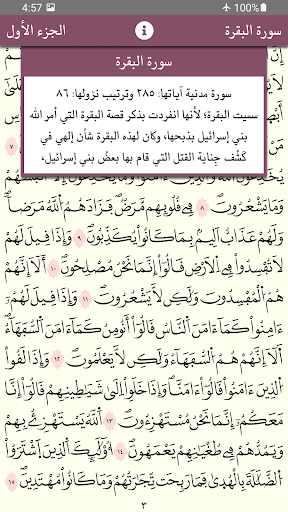 4:57 100%
سورة البقرة الجزء الأول
سورة البقرة
سورة مدنية آياتها: ٢٨٥ وترتيب نزولها: ٨٦
سميت البقرة؛ لأنها انفردت بذكر قصة البقرة التي أمر الله
بني إسرائيل بذبحها، وكان لهذه البقرة شأن إلهي في
كَشْف جِناية القتل التي قام بها بعضُ بني إسرائيل،
٧
وَمَا يَشْعُرُونَ ٨ فِي قُلُوبِهِم مَّرَضٌ فَزَادَهُمُ ٱللَّهُ مَرَضًا
وَلَهُمْ عَذَابٌ أَلِيمٌۢ بِمَا كَانُوا۟ يَكْذِبُونَ ٩ وَإِذَا قِيلَ لَهُمْ
لَا تُفْسِدُوا۟ فِي ٱلْأَرْضِ قَالُوٓا۟ إِنَّمَا نَحْنُ مُصْلِحُونَ ١٠ أَلَآ إِنَّهُمْ
هُمُ ٱلْمُفْسِدُونَ وَلَٰكِن لَّا يَشْعُرُونَ ١١ وَإِذَا قِيلَ لَهُمْ
ءَامِنُوا۟ كَمَآ ءَامَنَ ٱلنَّاسُ قَالُوٓا۟ أَنُؤْمِنُ كَمَآ ءَامَنَ ٱلسُّفَهَآءُ
أَلَآ إِنَّهُمْ هُمُ ٱلسُّفَهَآءُ وَلَٰكِن لَّا يَعْلَمُونَ ١٢ وَإِذَا لَقُوا۟
ٱلَّذِينَ ءَامَنُوا۟ قَالُوٓا۟ ءَامَنَّا وَإِذَا خَلَوْا۟ إِلَىٰ شَيَٰطِينِهِمْ قَالُوٓا۟ إِنَّا
مَعَكُمْ إِنَّمَا نَحْنُ مُسْتَهْزِءُونَ ١٣ ٱللَّهُ يَسْتَهْزِئُ بِهِمْ
وَيَمُدُّهُمْ فِي طُغْيَٰنِهِمْ يَعْمَهُونَ ١٤ أُو۟لَٰٓئِكَ ٱلَّذِينَ ٱشْتَرَوُا۟
ٱلضَّلَٰلَةَ بِٱلْهُدَىٰ فَمَا رَبِحَت تِّجَٰرَتُهُمْ وَمَا كَانُوا۟ مُهْتَدِينَ ١٥
٣